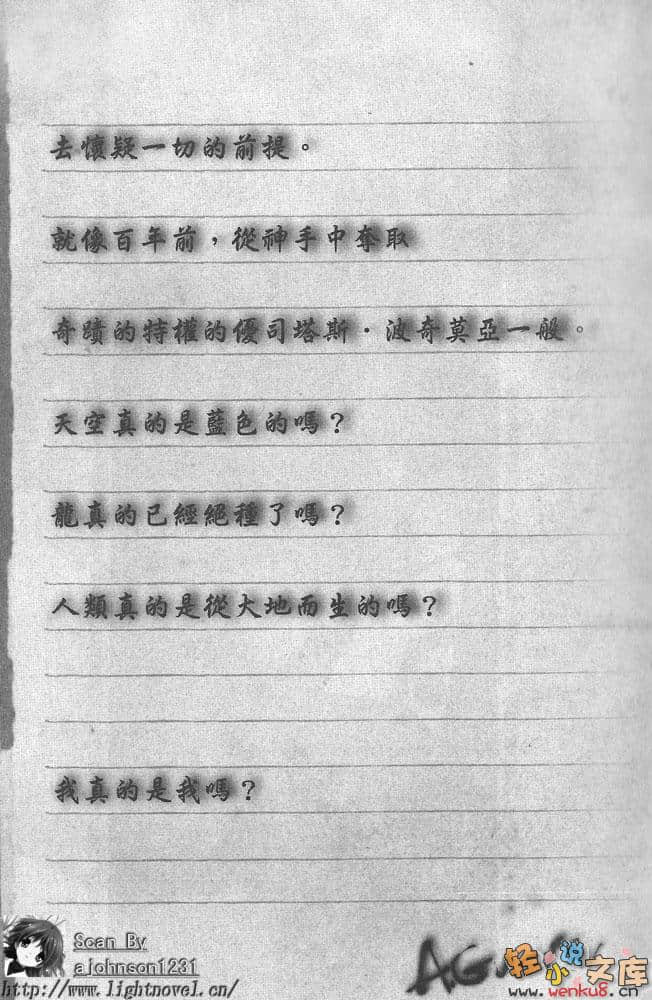 去懷疑一切的前提。
就像百年前，從神手中奪取
奇蹟的特權的優司塔斯·波奇莫亞一般。
天空真的是藍色的嗎？
龍真的已經絕種了嗎？
人類真的是從大地而生的嗎？
我真的是我嗎？
Scan By
ajohnson1231
http://www.lightnovel.cn/
轻小说文库
www.wenku8.cn